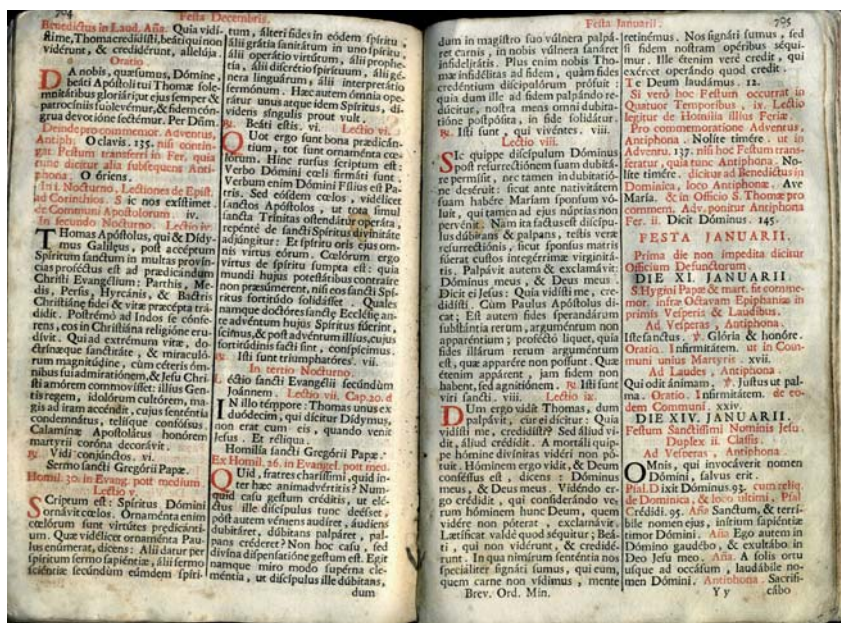 794
Festa Decembris.
Benedictus in Laud. Aña. Quia vidí-
stime, Thoma credidísti, beáti qui non
vidérunt, & credidérunt, allelúja.
Oratio.
DA nobis, quæsumus, Dómine,
beáti Apóstoli tui Thomæ sole-
mnitátibus gloriári; ut ejus semper &
patrocíniis sublevémur, & fidem cón-
grua devotióne sectémur. Per Dñm.
Deinde pro commemor. Adventus,
Antiph. O clavis. 135. nisi contin-
gat Festum transferri in Fer. quia
tunc dicitur alia subsequens Anti-
phona. O óriens.
In I. Nocturno, Lectiones de Epist.
ad Corinthios. Sic nos exístimet.
de Communi Apostolorum. iv.
In secundo Nocturno. Lectio iv.
THomas Apóstolus, qui & Dídy-
mus Galilæus, post accéptum
Spíritum sanctum in multas provín-
cias proféctus est ad prædicándum
Christi Evangélium: Parthis, Me-
dis, Persis, Hyrcánis, & Bactris
Christiánæ fídei & vitæ præcépta trá-
didit. Postrémò ad Indos se cónfe-
rens, eos in Christiána religióne eru-
dívit. Qui ad extrémum vitæ, do-
ctrinæque sanctitáte, & miraculó-
rum magnitúdine, cùm céteris óm-
nibus sui admiratiónem, & Jesu Chri-
sti amórem commovísset: illíus Gen-
tis regem, idolórum cultórem, ma-
gis ad iram accéndit, cujus senténtia
condemnátus, telísque confóssus,
Calamínæ Apostolátus honórem
martyrii coróna decorávit.
℟. Vidi conjúnctos. vi.
Sermo sancti Gregórii Papæ.
Homil. 30. in Evang. post medium.
Lectio v.
SCriptum est: Spíritus Dómini
ornávit cœlos. Ornaménta enim
cœlórum sunt virtútes prædicánti-
um. Quæ vidélicet ornaménta Pau-
lus enúmerat, dicens: Alii datur per
spíritum sermo sapiéntiæ, álii sermo
sciéntiæ secúndùm eúmdem spíri-
tum, álteri fides in eódem spíritu,
álii grátia sanitátum in uno spíritu,
álii operátio virtútum, álii prophe-
tía, álii discrétio spirítuum, álii gé-
nera linguárum, álii interpretátio
sermónum. Hæc autem ómnia ope-
rátur unus atque idem Spíritus, dí-
videns síngulis prout vult.
℟. Beáti estis. vi. Lectio vi.
QUot ergo sunt bona prædicán-
tium, tot sunt ornaménta cœ-
lórum. Hinc rursus scriptum est:
Verbo Dómini cœli firmáti sunt.
Verbum enim Dómini Fílius est Pa-
tris. Sed eósdem cœlos, vidélicet
sanctos Apóstolos, ut tota simul
sancta Trínitas ostendátur operáta,
repénté de sancti Spíritus divinitáte
adjúngitur: Et spíritu oris ejus om-
nis virtus eórum. Cœlórum ergo
virtus de spíritu sumpta est: quia
mundi hujus potestátibus contraíre
non præsúmerent, nisi eos sancti Spí-
ritus fortitúdo solidásset. Quales
namque doctóres sanctæ Ecclésiæ an-
te advéntum hujus Spíritus fúerint,
scimus, & post advéntum illíus, cujus
fortitúdinis facti sint, conspícimus.
℟. Isti sunt triumphatóres. vii.
In tertio Nocturno.
Léctio sancti Evangélii secúndùm
Joánnem. Lectio vii. Cap. 20. d
IN illo témpore: Thomas unus ex
duódecim, qui dícitur Dídymus,
non erat cum eis, quando venit
Jesus. Et réliqua.
Homilía sancti Gregórii Papæ.
Ex Homil. 26. in Evangel. post med.
QUid, fratres charíssimi, quid in-
ter hæc animadvértitis? Num-
quid casu gestum créditis, ut elé-
ctus ille discípulus tunc deésset,
pòst autem véniens audíret, áudiens
dubitáret, dúbitans palpáret, pal-
pans créderet? Non hoc casu, sed
divína dispensatióne gestum est. Egit
namque miro modo supérna cle-
méntia, ut discípulus ille dúbitans,
dum
Festa Januarii.
795
dum in magístro suo vúlnera palpá-
ret carnis, in nobis vúlnera sanáret
infidelitátis. Plus enim nobis Tho-
mæ infidélitas ad fidem, quàm fides
credéntium discipulórum prófuit:
quia dum ille ad fidem palpándo re-
dúcitur, nostra mens omni dubita-
tióne postpósita, in fide solidátur.
℟. Isti sunt, qui vivéntes. viii.
Lectio viii.
SIc quippe discípulum Dóminus
post resurrectiónem suam dubitá-
re permísit, nec tamen in dubitatió-
ne deséruit: sicut ante nativitátem
suam habére Maríam sponsum vó-
luit, qui tamen ad ejus núptias non
pervénit. Nam ita factus est discípu-
lus dúbitans & palpans, testis veræ
resurrectiónis, sicut sponsus matris
fúerat custos integérrimæ virginitá-
tis. Palpávit autem & exclamávit:
Dóminus meus, & Deus meus.
Dicit ei Jesus: Quia vidísti me, cre-
didísti. Cùm Paulus Apóstolus di-
cat; Est autem fides sperandárum
substántia rerum, arguméntum non
apparéntium; proféctò liquet, quia
fides illárum rerum arguméntum
est, quæ apparére non possunt. Quæ
étenim appárent, jam fidem non
habent, sed agnitiónem. ℟. Isti sunt
viri sancti. viii. Lectio ix.
DUm ergo vidit Thomas, dum
palpávit, cur ei dícitur: Quia
vidísti me, credidísti? Sed áliud vi-
dit, áliud crédidit. A mortáli quip-
pe hómine divínitas vidéri non pó-
tuit. Hóminem ergo vidit, & Deum
conféssus est, dicens: Dóminus
meus, & Deus meus. Vidéndo er-
go crédidit, qui considerándo ve-
rum hóminem hunc Deum, quem
vidére non póterat, exclamávit.
Lætíficat valdè quod séquitur; Beá-
ti, qui non vidérunt, & credidé-
runt. In qua nimírum senténtia nos
speciáliter signáti sumus, qui eum,
quem carne non vídimus, mente
Brev. Ord. Min.
retinémus. Nos signáti sumus, sed
si fidem nostram opéribus séqui-
mur. Ille étenim verè credit, qui
exércet operándo quod credit.
Te Deum laudámus. 12.
Si verò hoc Festum occurrat in
Quatuor Temporibus, ix. Lectio
legitur de Homilia illius Feriæ.
Pro commemoratione Adventus,
Antiphona. Nolíte timére. ut in
Adventu. 137. nisi hoc Festum trans-
feratur, quia tunc Antiphona. No-
líte timére. dicitur ad Benedictus in
Dominica, loco Antiphonæ. Ave
María. & in Officio S. Thomæ pro
commem. Adv. ponitur Antiphona
Fer. ii. Dicit Dóminus. 145.
FESTA JANUARII.
Prima die non impedita dicitur
Officium Defunctorum.
DIE XI. JANUARII.
S. Hygini Papæ & mart. fit comme-
mor. infra Octavam Epiphaniæ in
primis Vesperis & Laudibus.
Ad Vesperas, Antiphona.
Iste sanctus. ℣. Glória & honóre.
Oratio. Infirmitátem. ut in Com-
muni unius Martyris. xvii.
Ad Laudes, Antiphona.
Qui odit ánimam. ℣. Justus ut pal-
ma. Oratio. Infirmitátem. de eo-
dem Communi. xxiv.
DIE XIV. JANUARII.
Festum Sanctissimi Nominis Jesu.
Duplex ii. Classis.
Ad Vesperas, Antiphona.
OMnis, qui invocáverit nomen
Dómini, salvus erit.
Psal. Dixit Dóminus. 93. cum reliq.
de Dominica, & loco ultimi, Psal
Crédidi. 95. Aña Sanctum, & terrí-
bile nomen ejus, inítium sapiéntiæ
timor Dómini. Aña Ego autem in
Dómino gaudébo, & exultábo in
Deo Jesu meo. Aña. A solis ortu
usque ad occásum, laudábile no-
men Dómini. Antiphona. Sacrifi-
Y y cábo